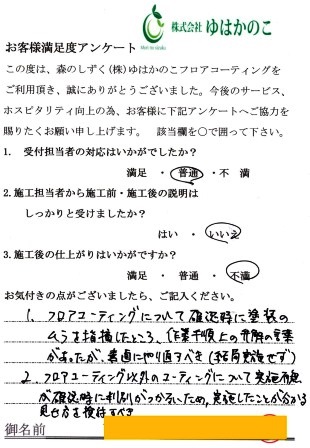 株式会社 ゆはかのこ
お客様満足度アンケート
この度は、森のしずく(株)ゆはかのこフロアコーティングを
ご利用頂き、誠にありがとうございました。今後のサービス、
ホスピタリティ向上の為、お客様に下記アンケートへご協力を
賜りたくお願い申し上げます。 該当欄を〇で囲って下さい。
1. 受付担当者の対応はいかがでしたか?
満足 ・ 普通 ・ 不 満
2.施工担当者から施工前・施工後の説明は
しっかりと受けましたか?
はい ・ いいえ
3.施工後の仕上がりはいかがですか?
満足 ・ 普通 ・ 不満
お気付きの点がございましたら、ご記入ください。
1. フロアコーティングについて確認時に塗装の
ムラを指摘したところ、(作業手順上の弁解の言葉
があったが、普通にやり直すべき(結局実施せず)
2. フロアコーティング以外のコーティングについて実施可否
が確認時に判別がつかないため、実施したことが分かる
見せ方を検討すべき
御名前